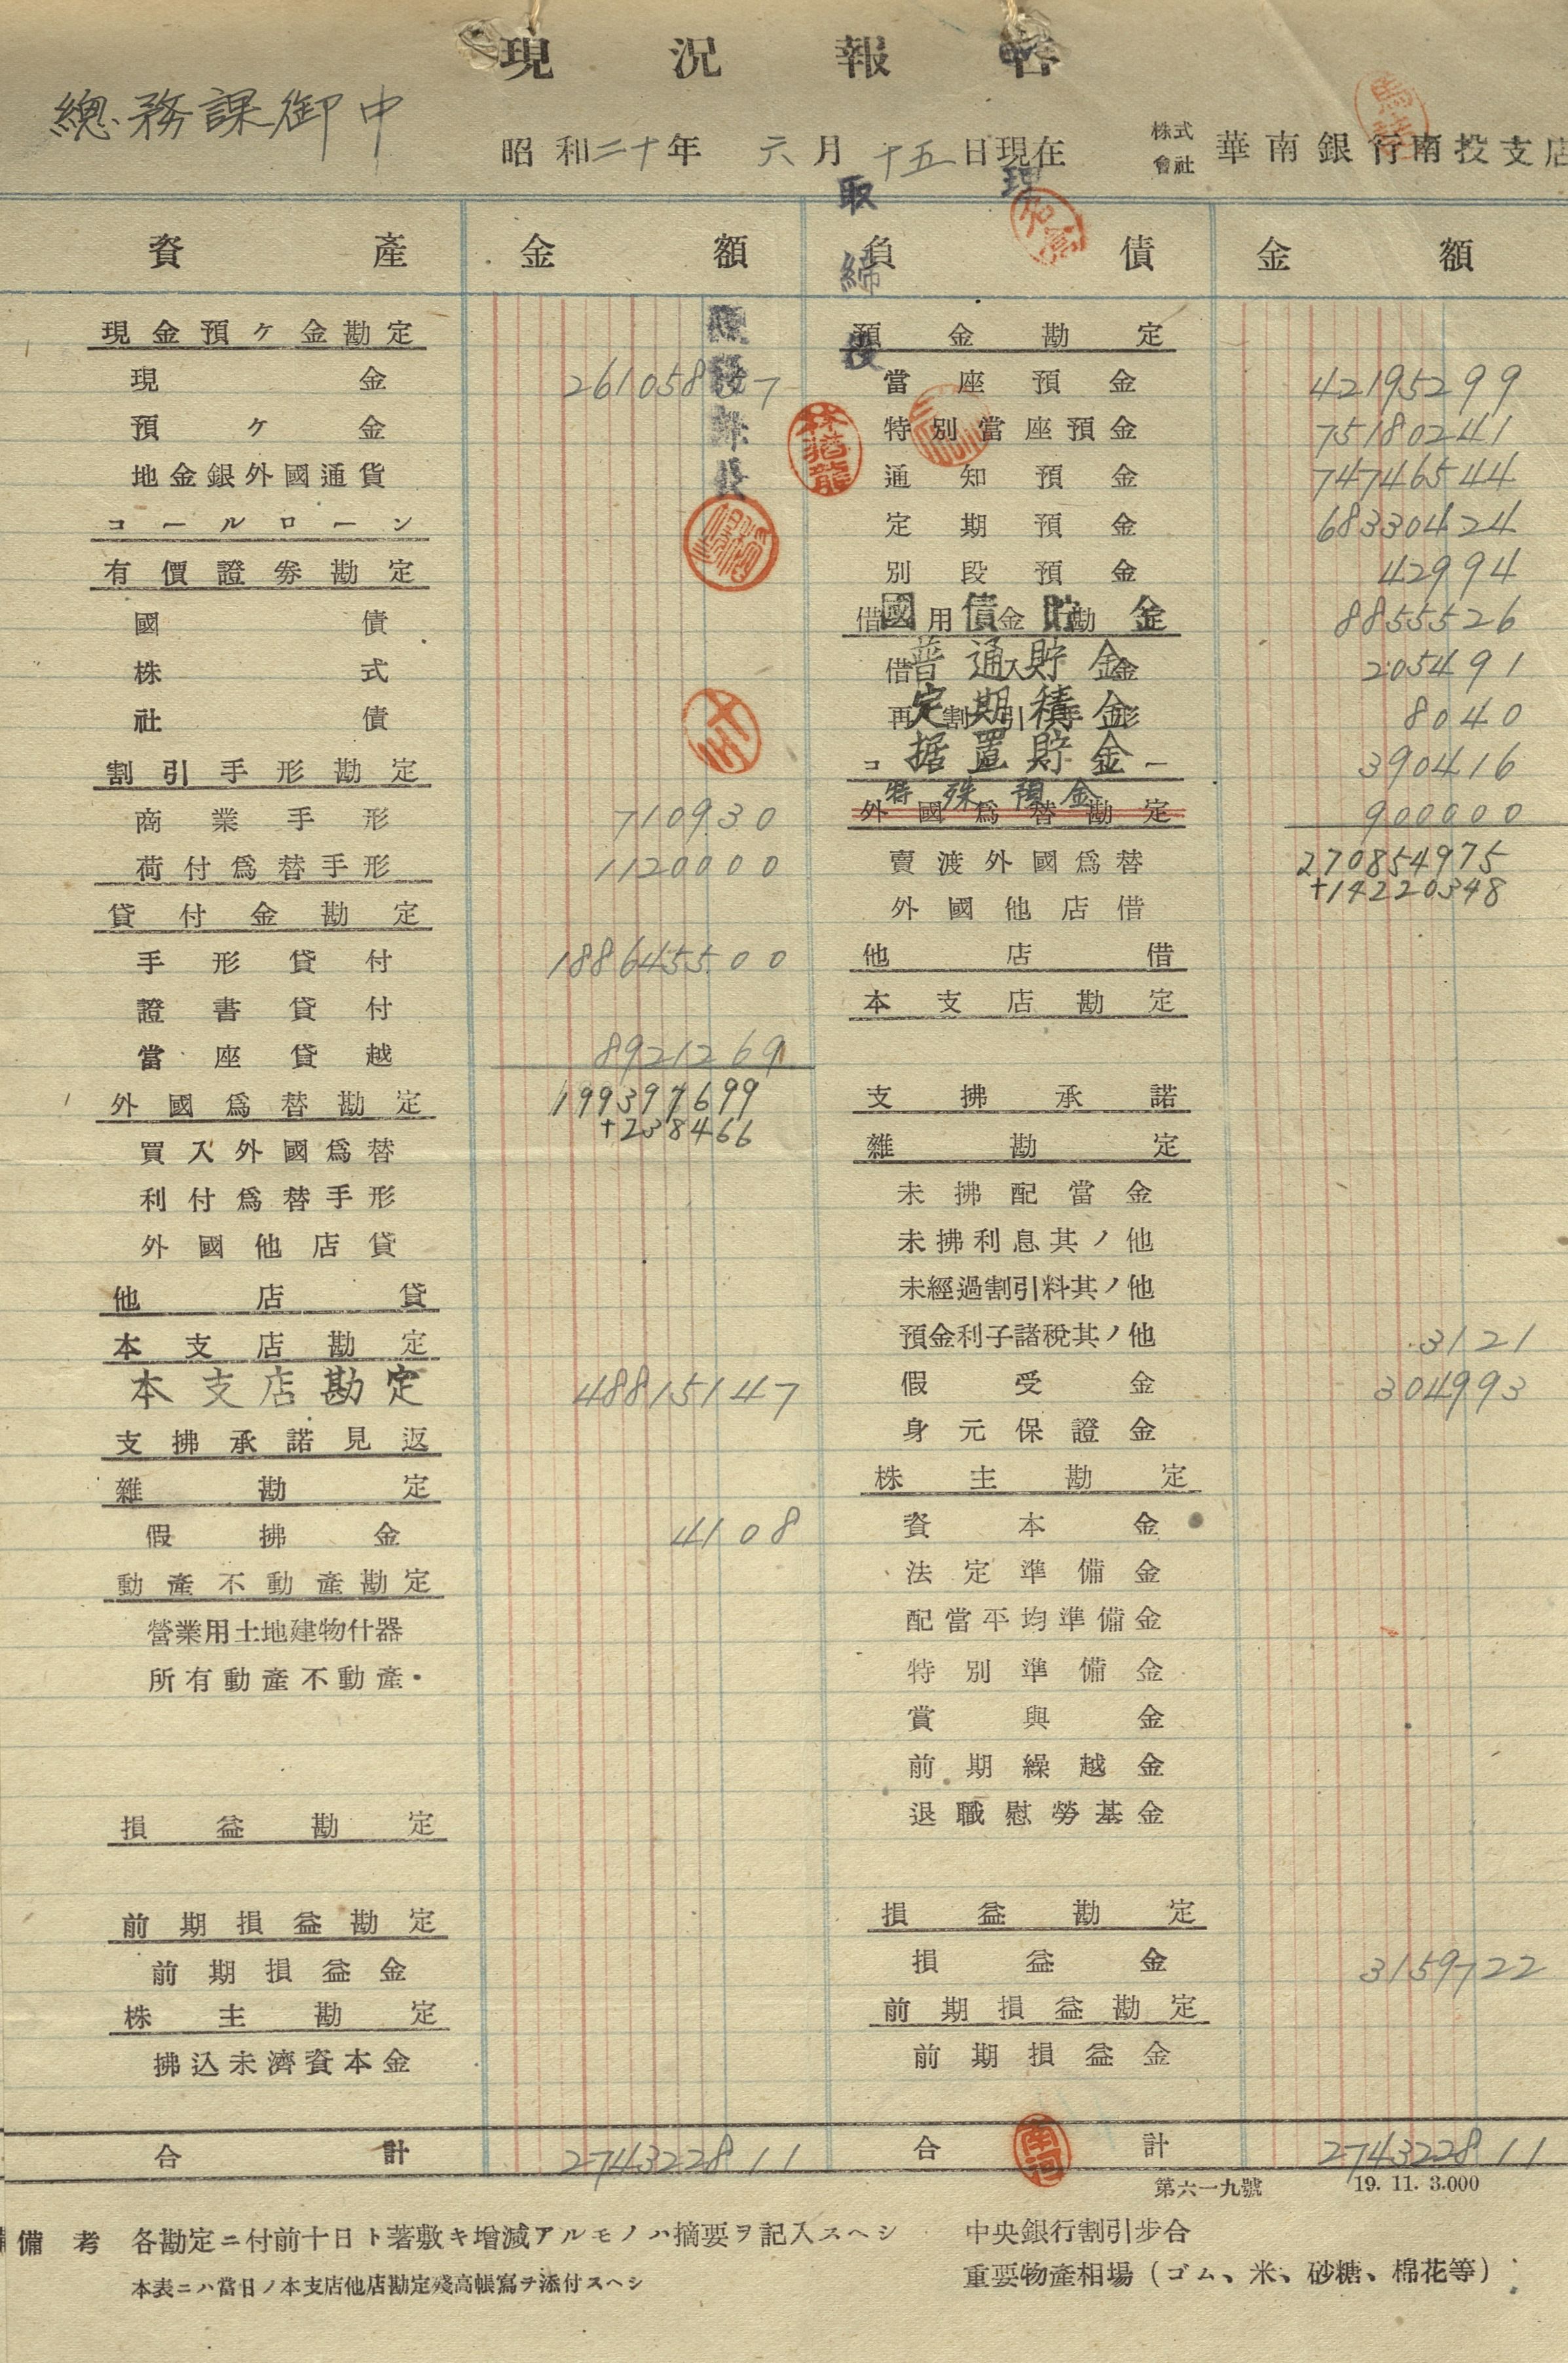 現況報告
總務課御中
昭和二十年 六月 十五日現在
株式會社 華南銀行南投支店
資產 金額
現金預ケ金勘定
現金 26105857
預ケ金
地金銀外國通貨
コールローン
有價證券勘定
國債
株式
社債
割引手形勘定
商業手形 710930
荷付爲替手形 1120000
貸付金勘定
手形貸付 188645500
證書貸付
當座貸越 8921269
外國爲替勘定 199397699
+238466
買入外國爲替
利付爲替手形
外國他店貸
他店貸
本支店勘定
本支店勘定 48815147
支拂承諾見返
雜勘定
假拂金 4108
動產不動產勘定
營業用土地建物什器
所有動產不動產
損益勘定
前期損益勘定
前期損益金
株主勘定
拂込未濟資本金
合計 274322811
取締役
林猶龍
負債 金額
預金勘定
當座預金 42195299
特別當座預金 75180241
通知預金 74746544
定期預金 68330424
別段預金 42994
借用金勘定
國債貯金 8855526
借入金
普通貯金 205491
再割引手形
定期積金 8040
据置貯金 390416
特殊預金 900000
外國爲替勘定
賣渡外國爲替 270854975
+14220348
外國他店借
他店借
本支店勘定
支拂承諾
雜勘定
未拂配當金
未拂利息其ノ他
未經過割引料其ノ他
預金利子諸稅其ノ他 3121
假受金 304993
身元保證金
株主勘定
資本金
法定準備金
配當平均準備金
特別準備金
賞與金
前期繰越金
退職慰勞基金
損益勘定
損益金 3159722
前期損益勘定
前期損益金
合計 274322811
南河
第六一九號 19. 11. 3.000
備考 各勘定ニ付前十日ト著敷キ增減アルモノハ摘要ヲ記入スヘシ
本表ニハ當日ノ本支店他店勘定殘高帳寫ヲ添付スヘシ
中央銀行割引步合
重要物產相場(ゴム、米、砂糖、棉花等)